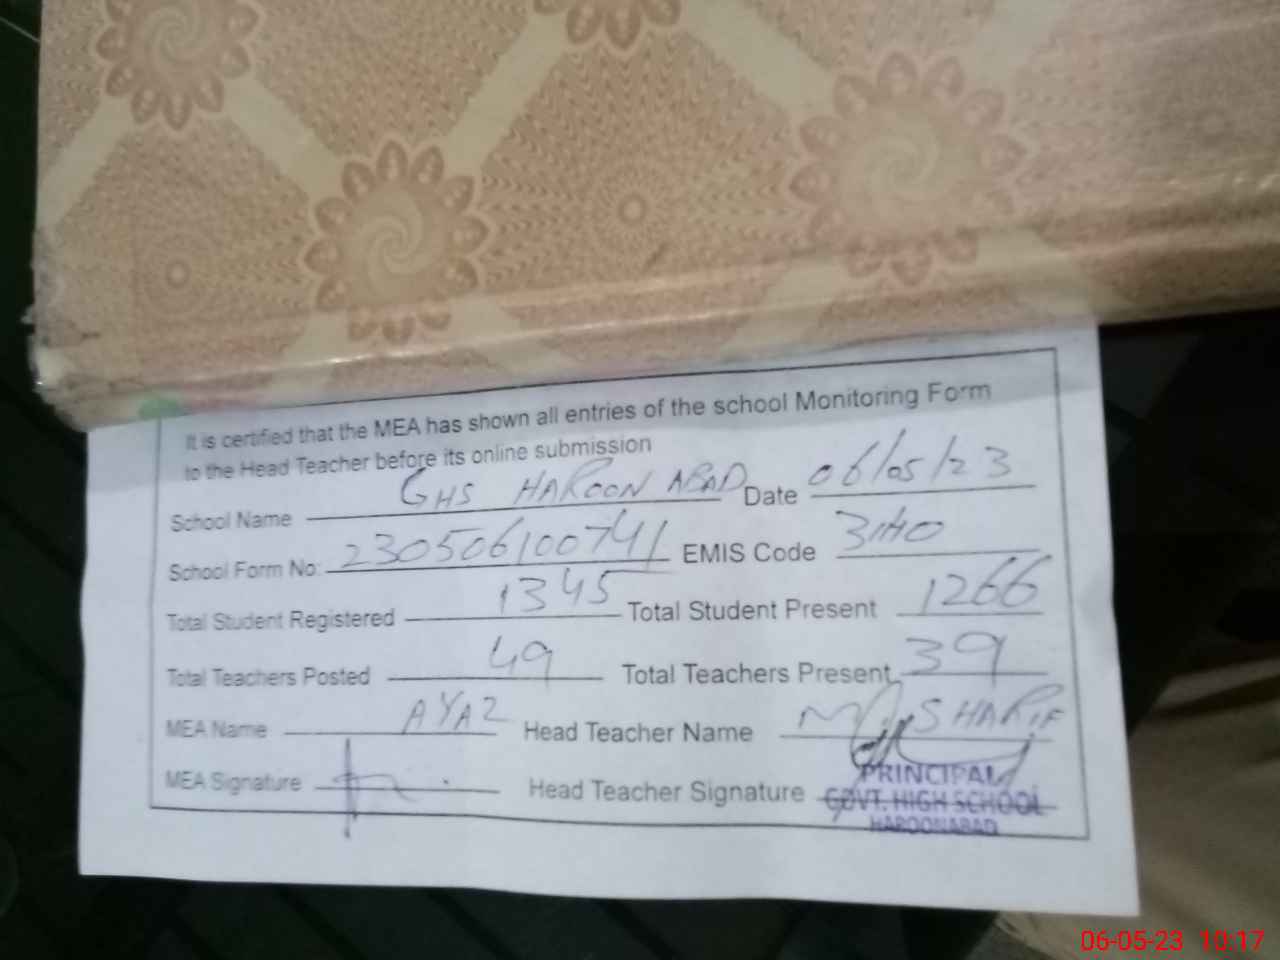 It is certified that the MEA has shown all entries of the school Monitoring Form
to the Head Teacher before its online submission
School Name GHS HAROON ABAD Date 06/05/23
School Form No: 230506100741 EMIS Code
Total Student Registered 1345 Total Student Present 1266
Total Teachers Posted 49 Total Teachers Present 39
MEA Name AYAZ Head Teacher Name M SHARIF
MEA Signature Head Teacher Signature
PRINCIPAL
GOVT. HIGH SCHOOL
HAROONABAD
06-05-23 10:17